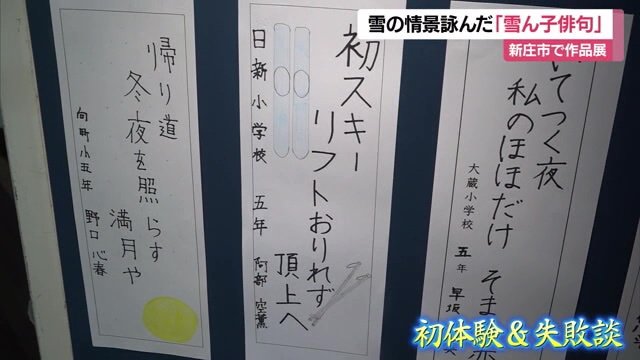 雪の情景詠んだ「雪ん子俳句」
新庄市で作品展
いてつく夜
私のほほだけ
そま
大蔵小学校 五年 早坂
初スキー
リフトおりれず
頂上へ
日新小学校 五年 阿部 空薫
帰り道
冬夜を照らす
満月や
向町小五年 野口 心春
初体験＆失敗談